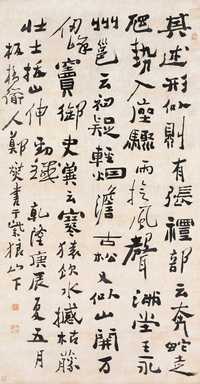 其述形似則有張禮部云奔蛇走
虺勢入座驟雨旋風聲滿堂王永
州邕云初疑輕烟澹古松又似山開万
仞峰竇御史冀云寒猿飲水撼枯藤
壯士拔山伸勁鐵 乾隆庚辰夏五月
板橋人鄭燮書于紫狼山下